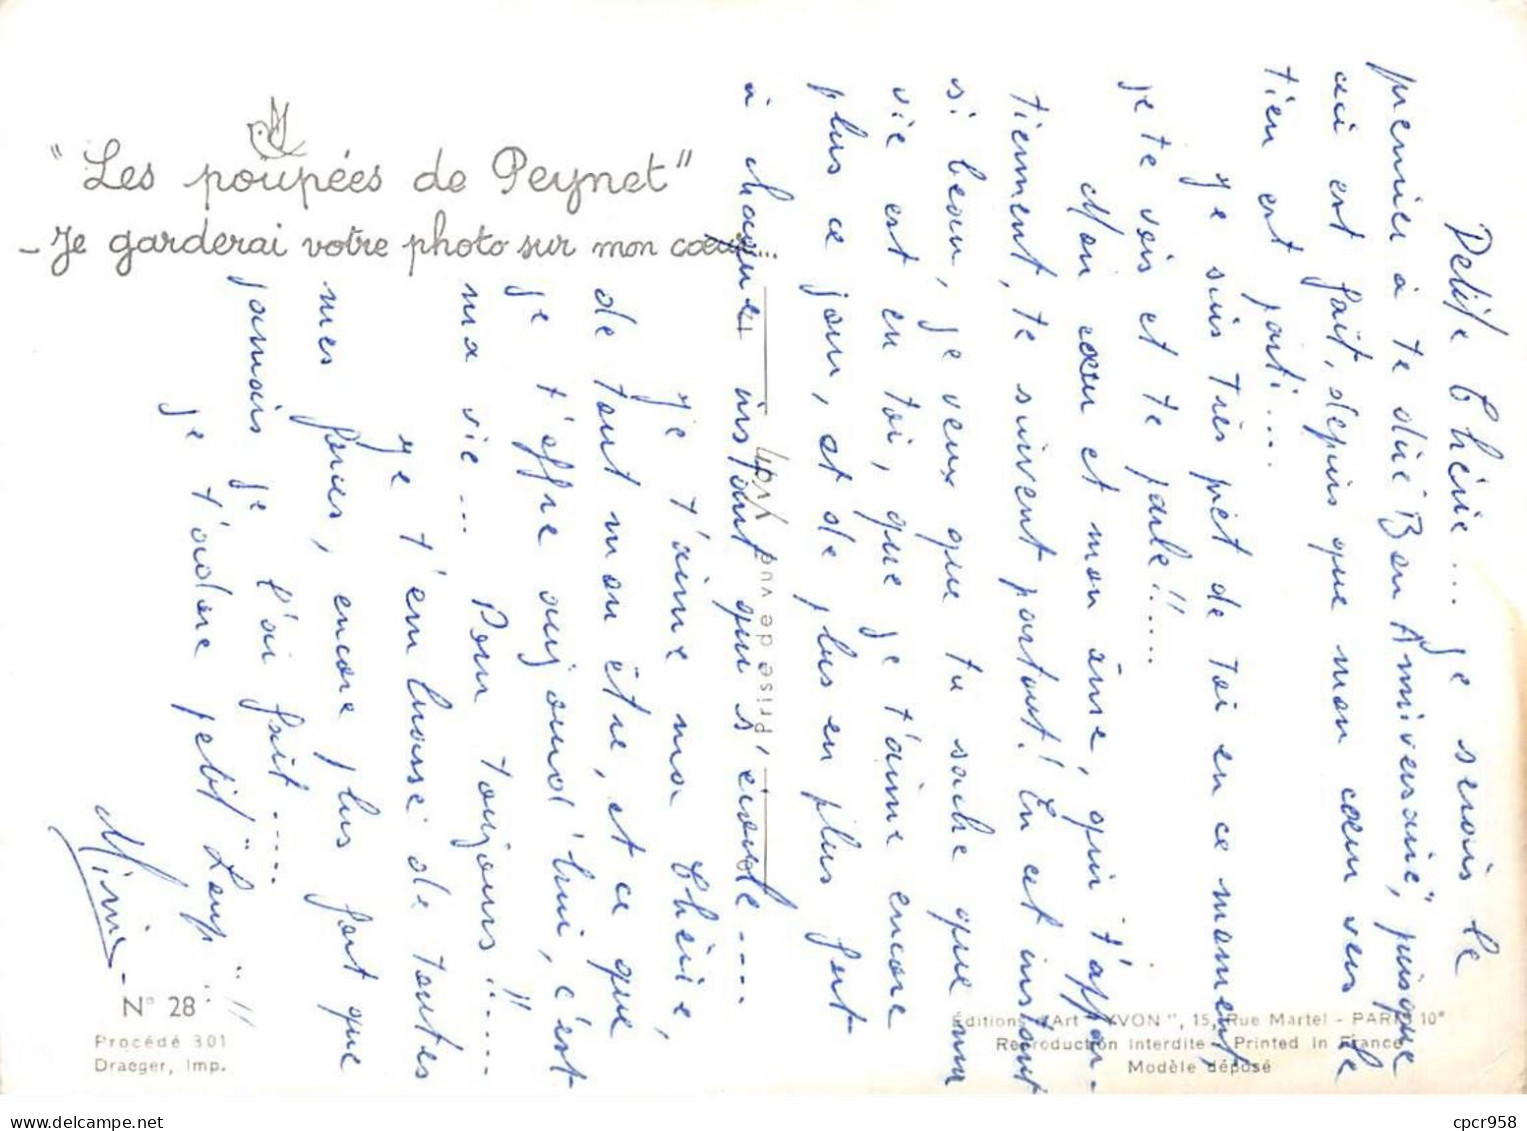 "Les poupées de Peynet"
- Je garderai votre photo sur mon cœur...
Petite Chérie... je serais le
premier à te dire "Bon Anniversaire", puisque
ceci est fait, depuis que mon cœur vers le
tien est parti...
Je suis très prêt de toi en ce moment,
je te vois et te parle!!....
Mon cœur et mon âme, qui t'appar-
tiennent, te suivent partout! En cet instant
si beau, je veux que tu sache que mon
vie est en toi, que je t'aime encore
plus ce jour, et de plus en plus fort
à chaques instant qui s'écoule....
Je t'aime ma Chérie,
de tout mon être, et ce que
je t'offre aujourd'hui, c'est
ma vie... Pour toujours!!....
Je t'embrasse de toutes
mes forces, encore plus fort que
jamais je l'ai fait.....
je t'adore petit "Loup"!!
Mimi
Prise de vue Yvon
N° 28
Procédé 301
Draeger, Imp.
Éditions d'Art "YVON", 15, Rue Martel - PARIS 10°
Reproduction Interdite - Printed in France
Modèle déposé
cpcr958